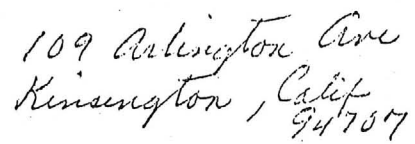 109 Arlington Ave
Kensington, Calif
94707